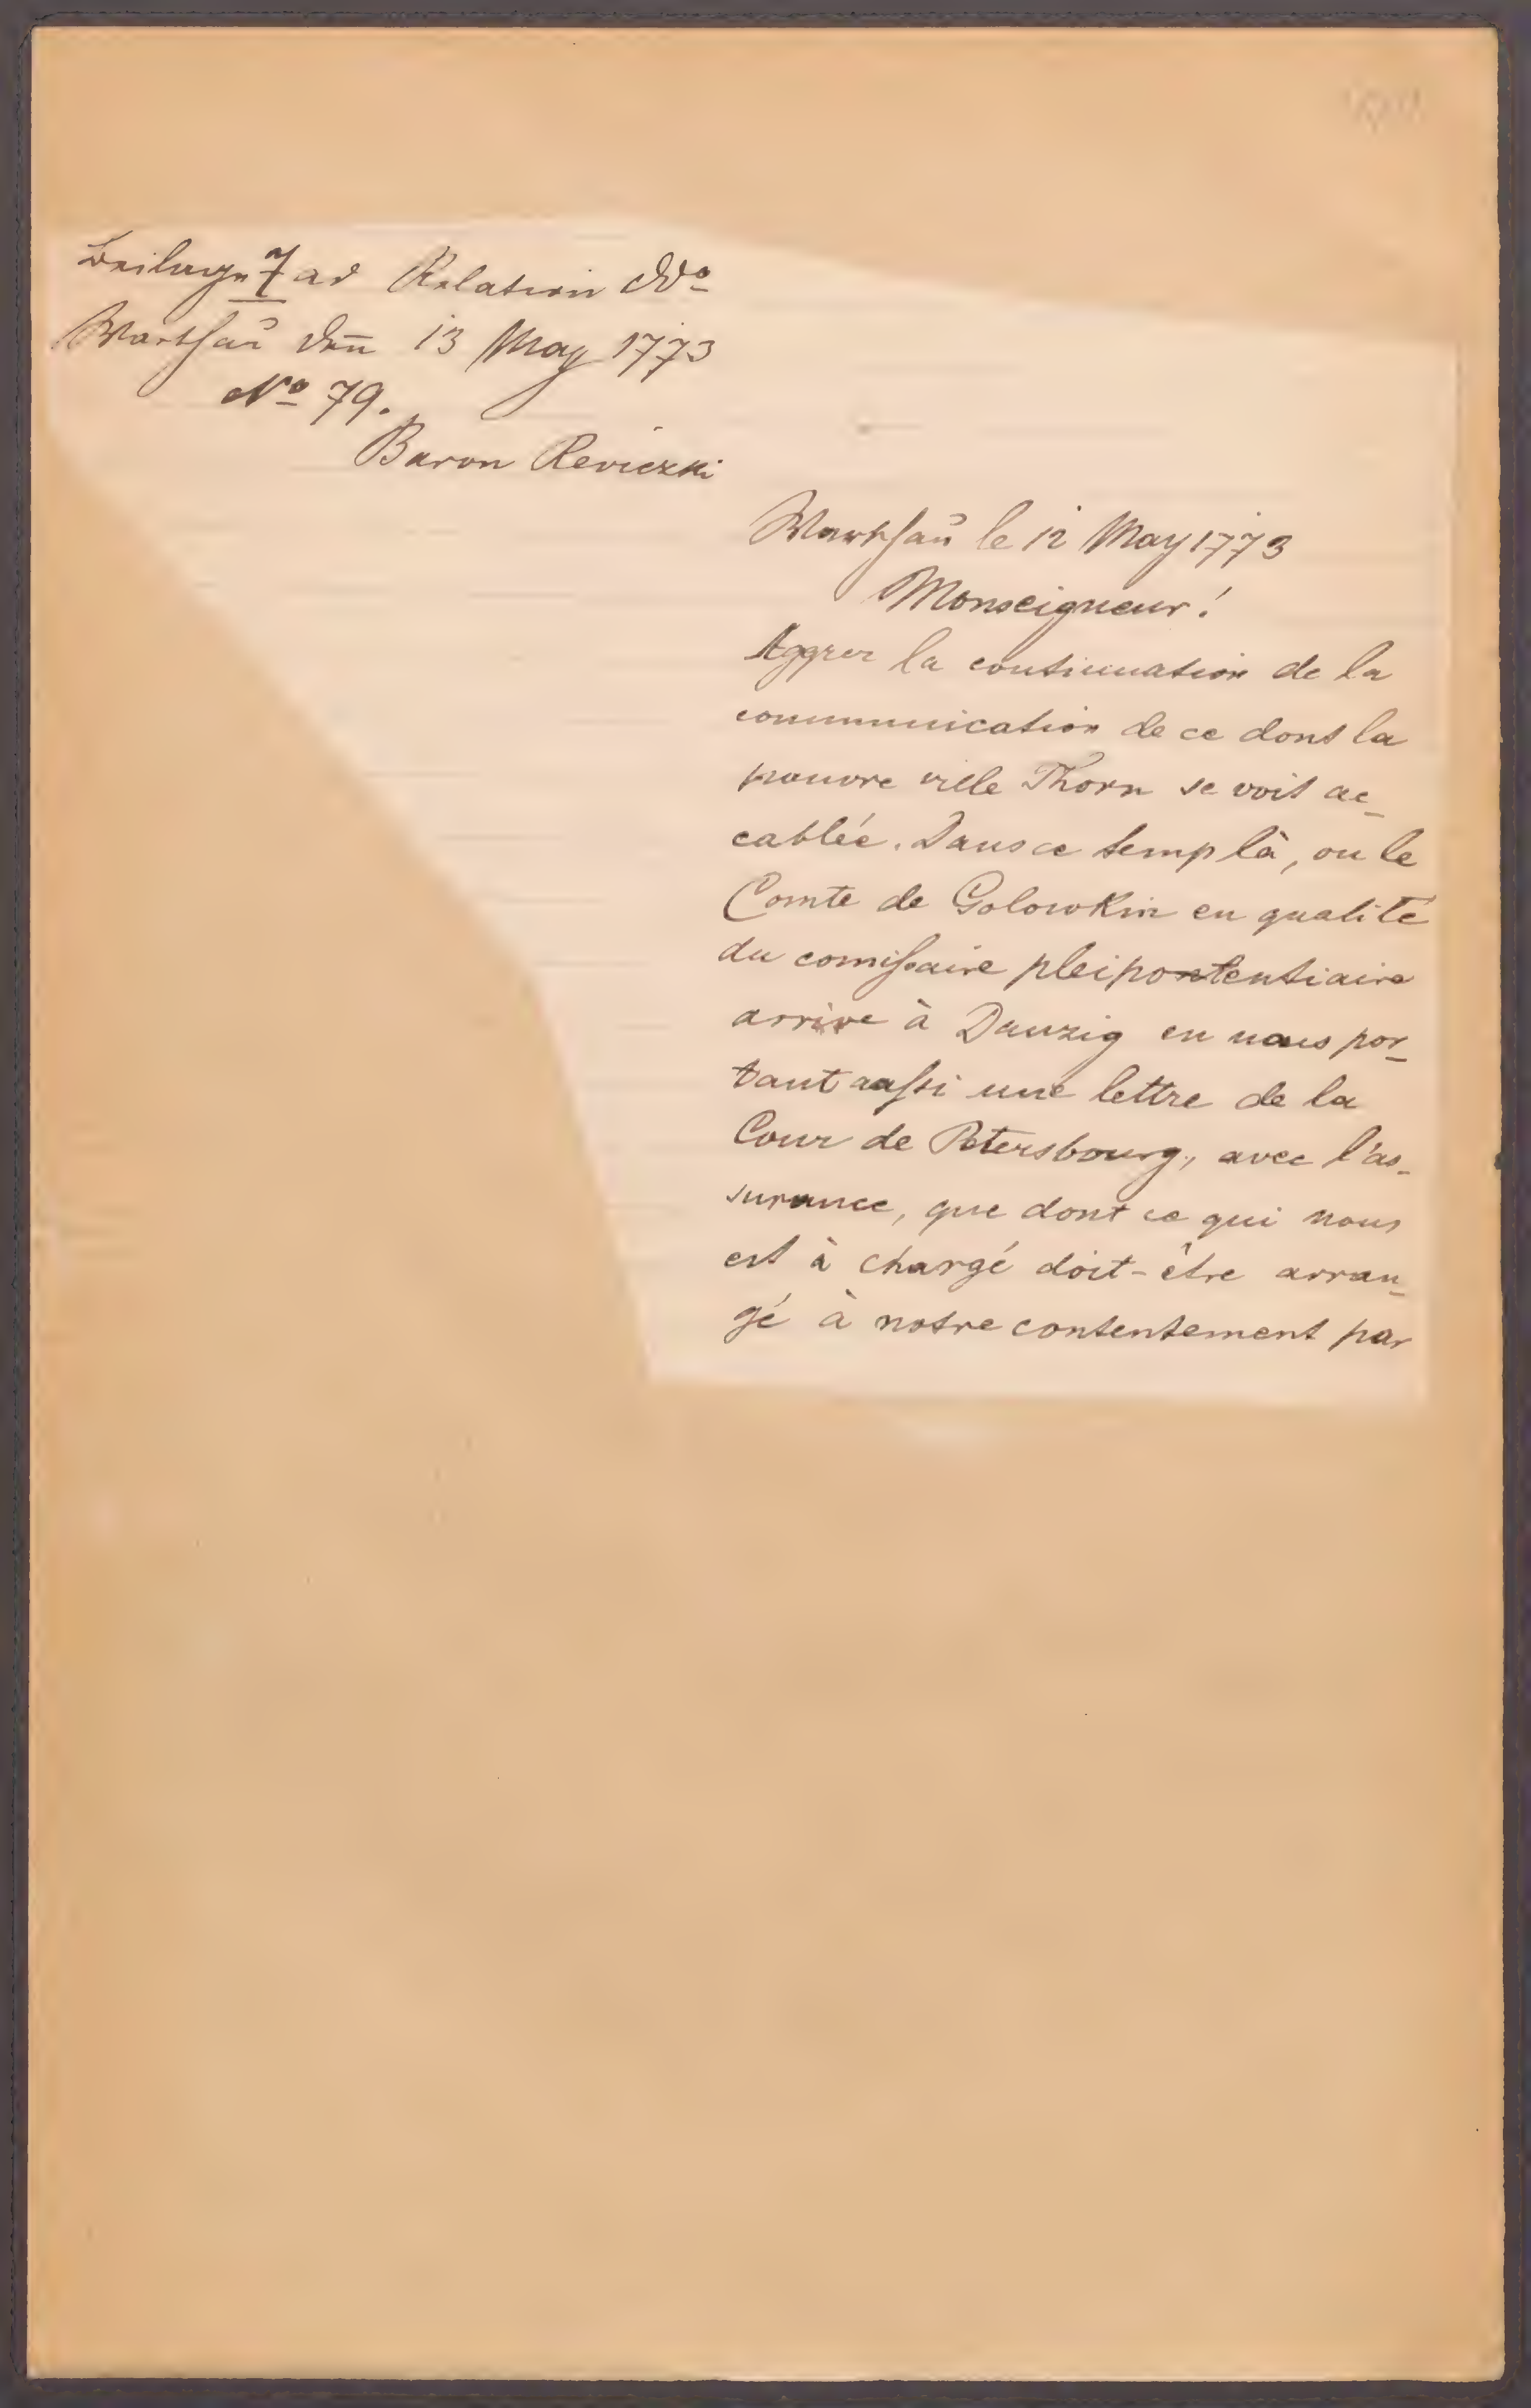 Beilage 7 ad Relation ddo
Warschaŭ den̄ 13 May 1773
No 79.
Baron Reviczki
Warschaŭ le 12 May 1773
Monseigneur!
Aggrer la continuation de la
communication de ce dont la
pauvre ville Thorn se voit ac_
cablée. Dans ce temp là, ou le
Comte de Golowkin en qualité
du comiſsaire pleipotentiaire
arrive à Danzig en nous por_
tant auſsi une lettre de la
Cour de Petersbourg, avec l'as_
surance, que dont ce qui nous
est à chargé doit-être arran_
gé à notre contentement par